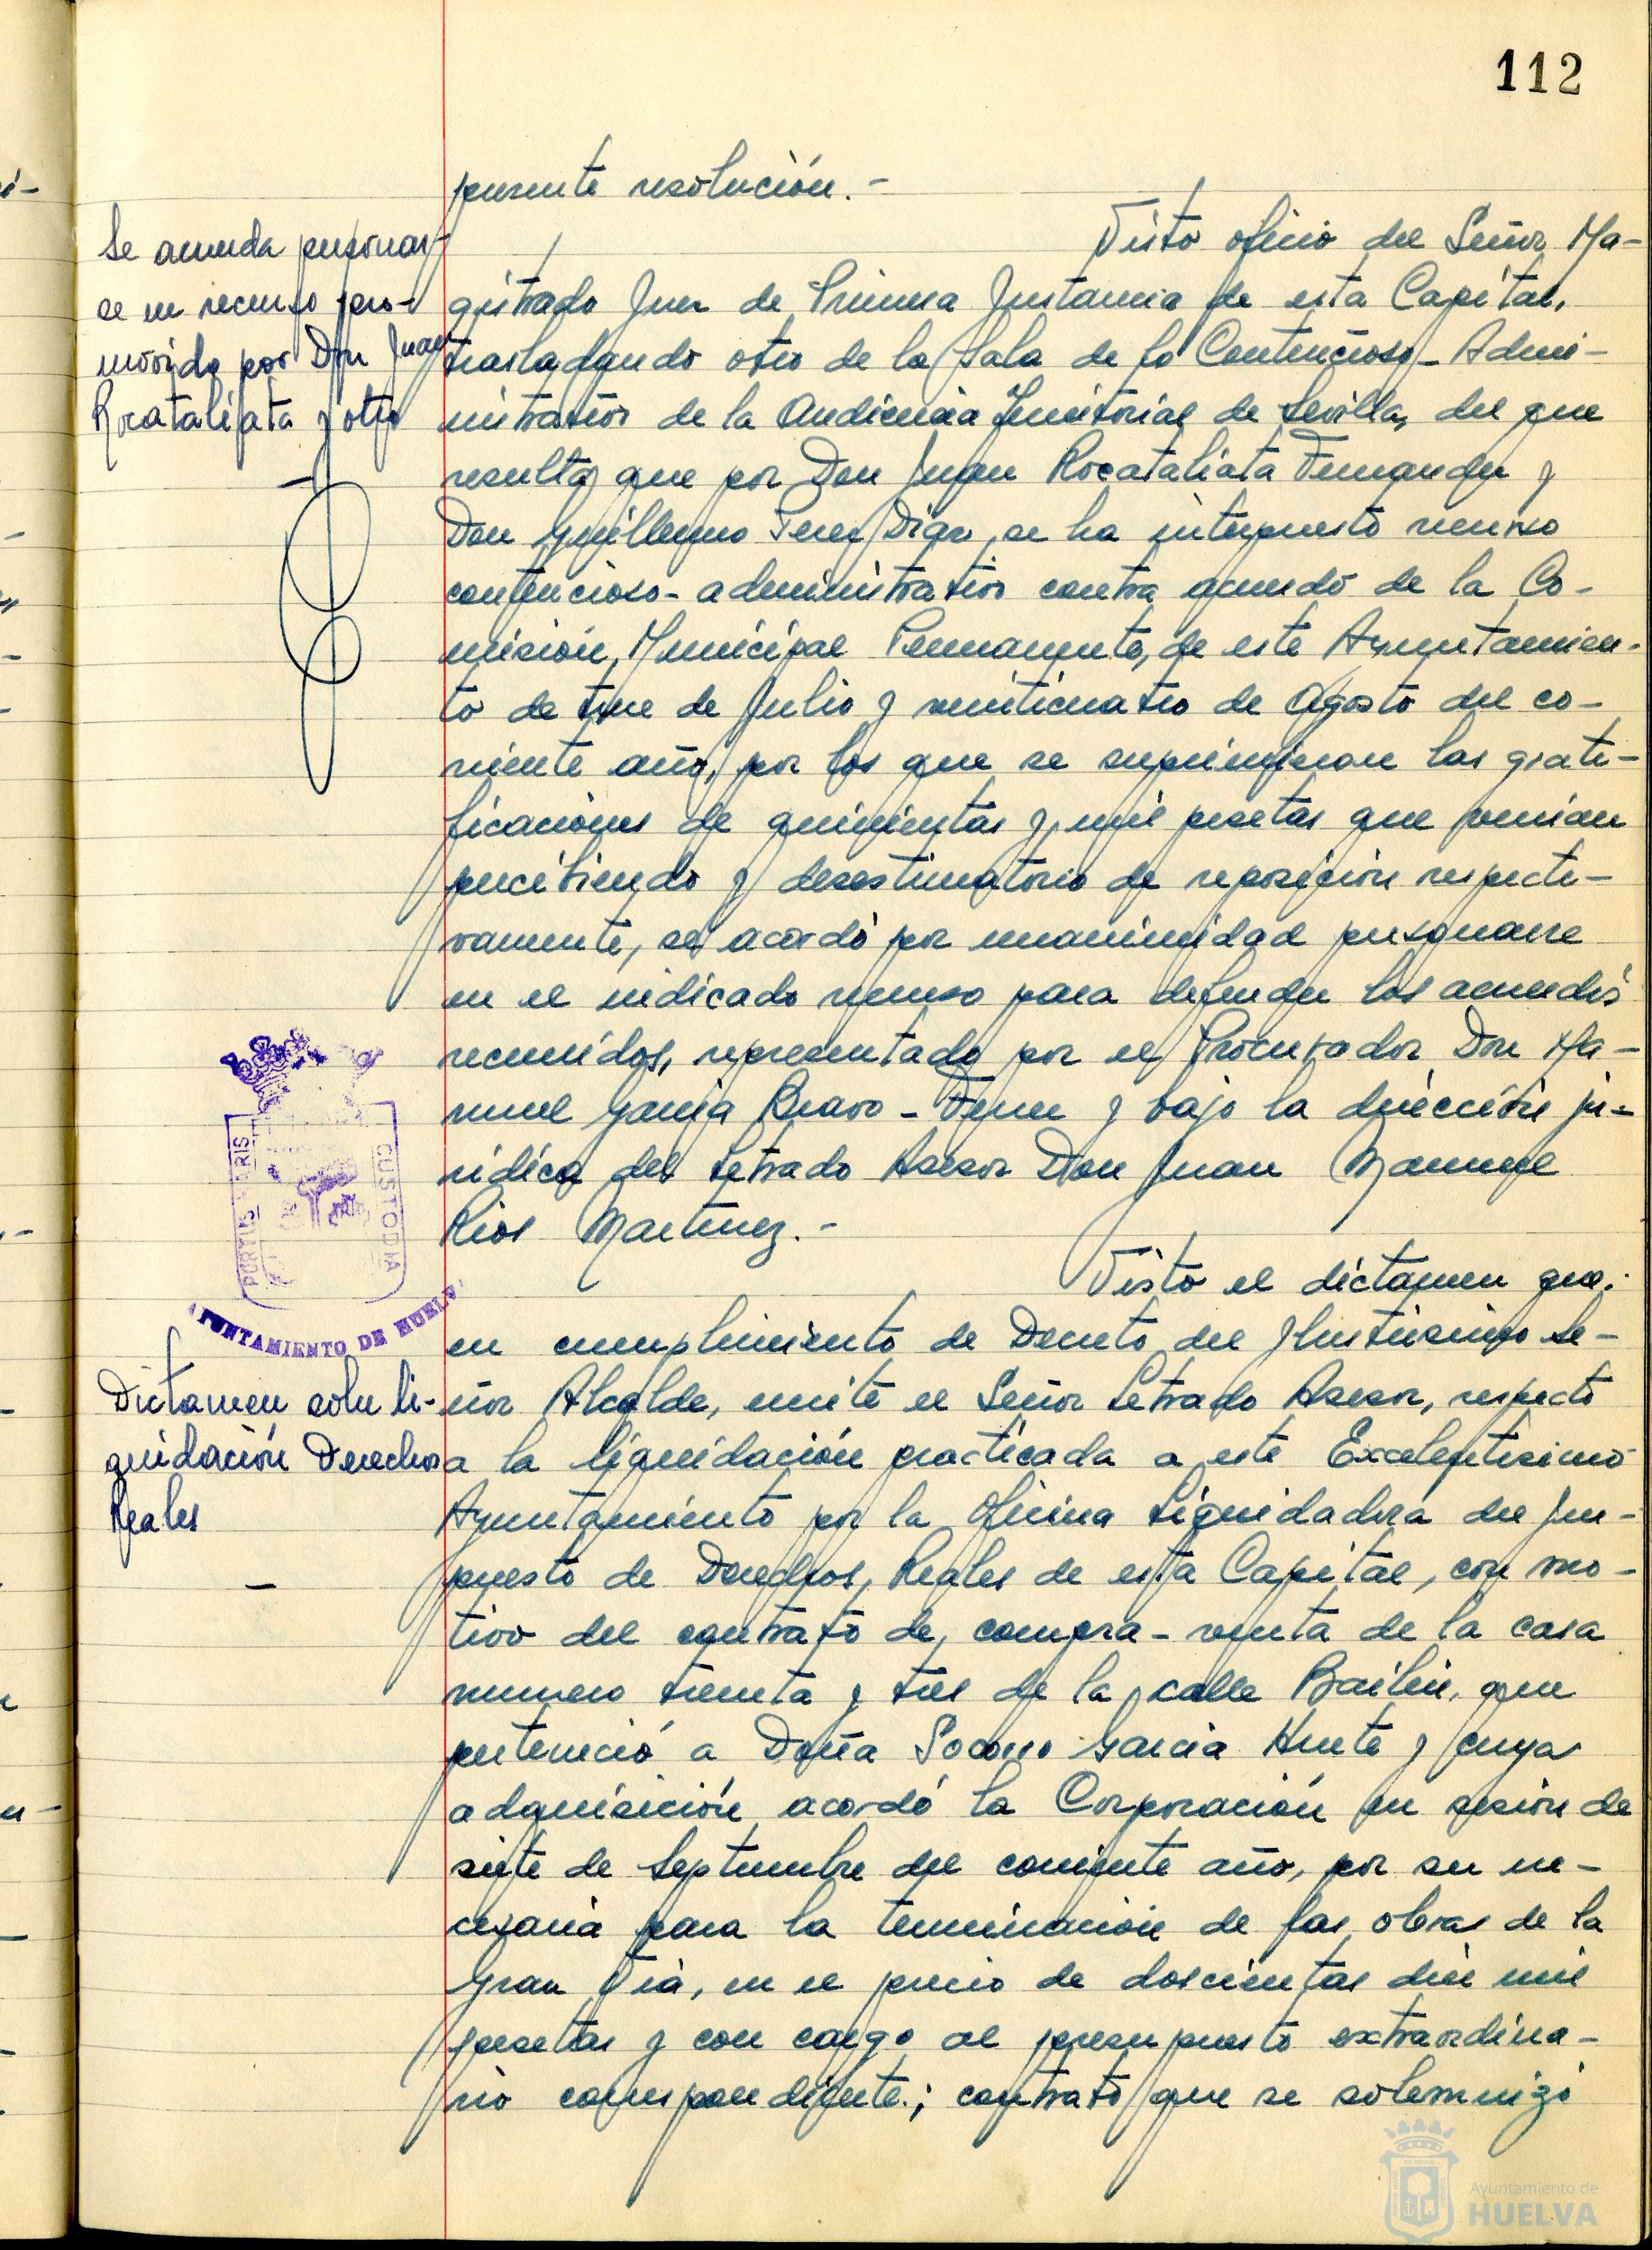 112
presente resolución.-
Se acuerda personar-
se en recurso pro-
movido por Don Juan
Rocataliata y otro
Visto oficio del Señor Ma-
gistrado Juez de Primera Instancia de esta Capital,
trasladando otro de la Sala de lo Contencioso-Admi-
nistrativo de la Audiencia Territorial de Sevilla, del que
resulta que por Don Juan Rocataliata Fernandez y
Don Guillermo Perez Diaz, se ha interpuesto recurso
contencioso-administrativo contra acuerdo de la Co-
misión Municipal Permanente, de este Ayuntamien-
to de trece de Julio y veinticuatro de Agosto del co-
rriente año, por los que se suprimieron las grati-
ficaciones de quinientas y mil pesetas que venian
percibiendo y desestimatorio de reposición respecti-
vamente, se acordó por unanimidad personarse
en el indicado recurso para defender los acuerdos
recurridos, representado por el Procurador Don Ma-
nuel Garcia Bravo-Ferrer y bajo la dirección ju-
ridica del Letrado Asesor Don Juan Manuel
Rios Martinez.-
PORTUS MARIS CUSTODIA
AYUNTAMIENTO DE HUELVA
Dictamen sobre li-
quidación Derechos
Reales
Visto el dictamen que,
en cumplimiento de Decreto del Ilustrisimo Se-
ñor Alcalde, emite el Señor Letrado Asesor, respecto
a la liquidación practicada a este Excelentisimo
Ayuntamiento por la Oficina Liquidadora del Im-
puesto de Derechos Reales de esta Capital, con mo-
tivo del contrato de compra-venta de la casa
numero treinta y tres de la calle Bailén, que
perteneció a Doña Socorro Garcia Huete y cuya
adquisición acordó la Corporación en sesión de
siete de Septiembre del corriente año, por ser ne-
cesaria para la terminación de las obras de la
Gran Via, en el precio de doscientas diez mil
pesetas y con cargo al presupuesto extraordina-
rio correspondiente; contrato que se solemnizó
Ayuntamiento de
HUELVA